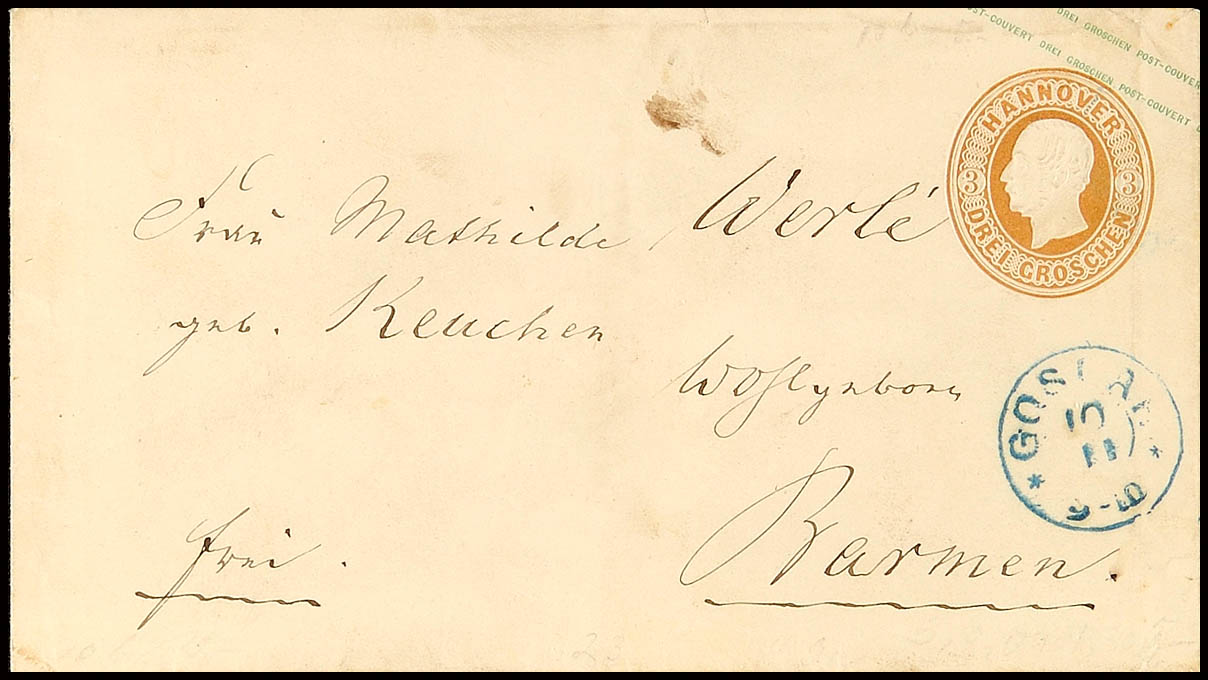 DREI GROSCHEN POST-COUVER
ST-COUVERT DREI GROSCHEN POST-COUVERT D
HANNOVER
3 3
DREI GROSCHEN
Frau Mathilde Werlé
geb. Keuchen
Barmen.
frei.
GOSLAR
10
11
9-10